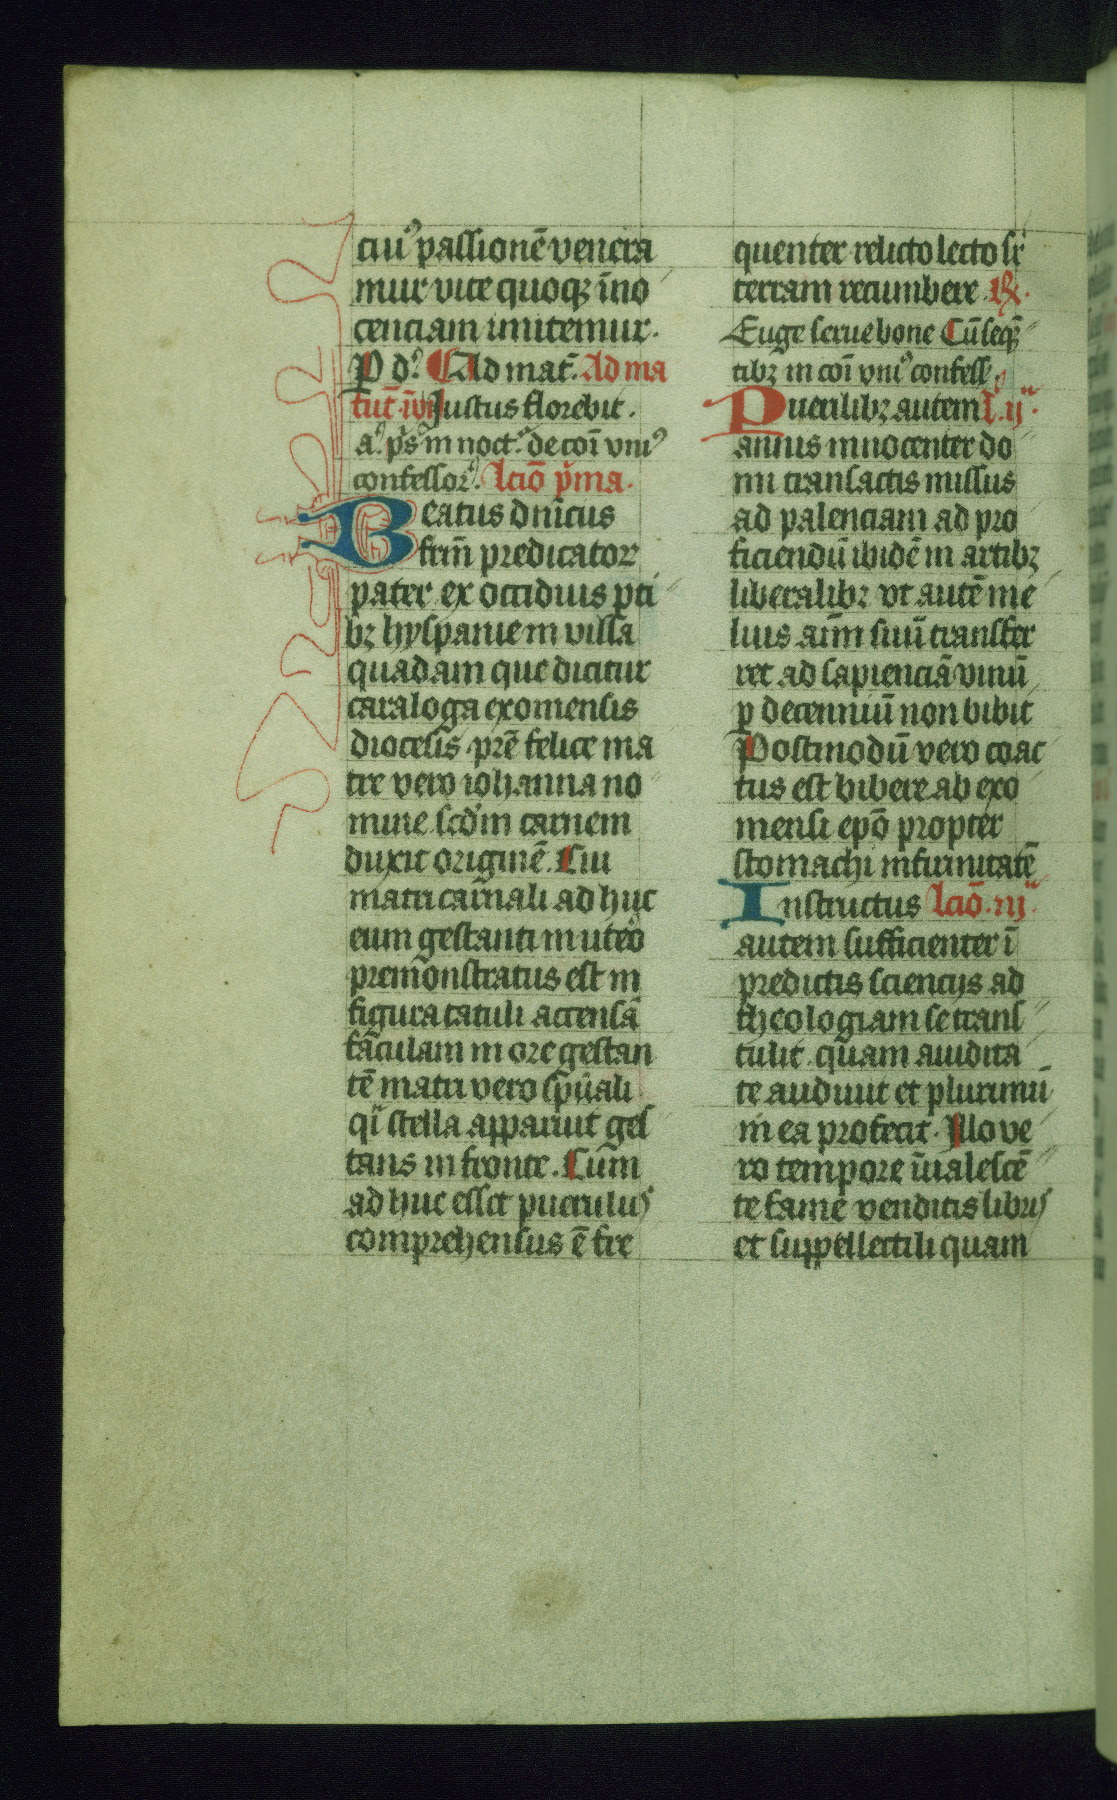 ciuꝰ passionē venera
mur vite quoqꝫ īno
centiam imitemur.
P dꝰ. Ad mat̄. Ad ma
tut̄ īvi Justus florebit.
aꝰ. ps̄ in noct̄. de coī vniꝰ
confessorꝰ. Lcīo p̄ma.
Beatus dn̄icus
frīm̄ predicator
pater ex occiduis ꝑti
bꝫ hyspanie in villa
quadam que dicitur
caraloga exomensis
diocesis pr̄e felice ma
tre vero iohanna no
mine scd̄m carnem
duxit originē. Cui
matri carnali ad huc
eum gestanti in utero
premonstratus est in
figura catuli accensā
faculam in ore gestan
tē matri vero sp̄uali
qͥ stella apparuit ges
tans in fronte. Cum
ad huc esset puerulus
comprehensus ē fre
quenter relicto lecto sr̄
terram recumbere. R̸.
Euge serue bone Cū seqn̄
tibꝫ in coī vniꝰ confess.
Puerilibꝫ autem L. ij
annis innocenter do
mi transactis missus
ad palenciam ad pro
ficiendū ibidē in artibꝫ
liberalibꝫ vt autē me
lius aīm suū transfer
ret ad sapienciā vinū
ꝑ decenniū non bibit
Postmodū vero coac
tus est bibere ab exo
mensi epō propter
stomachi infirmitatē
Instructus Lcīo. iij
autem sufficienter ī
predictis sciencijs ad
theologiam se trans
tulit quam auidita
te audiuit et plurimū
in ea profecit. Illo ve
ro tempore īualescē
te fame venditis libris
et suppellectili quam